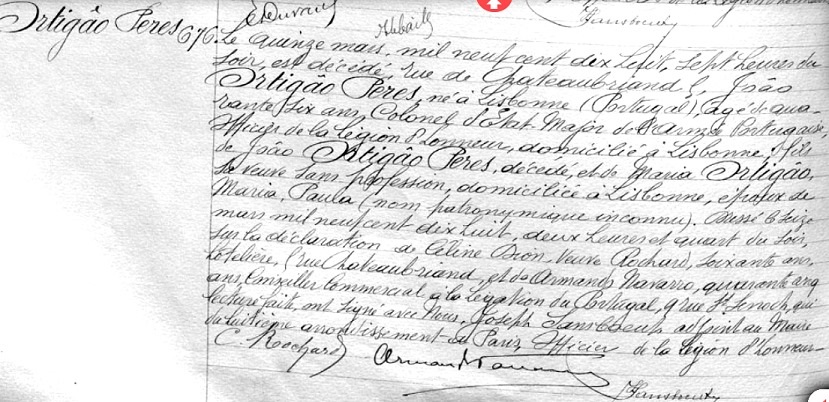 Ortigão Peres
676. Le quinze mars, mil neuf cent dix huit, sept heures du
soir, est décédé, rue de Chateaubriand 8, João
Ortigão Peres, né à Lisbonne (Portugal), agé de qua-
rante six ans, Colonel d'État-Major de l'Armée Portugaise,
Officier de la Légion d'honneur, domicilié à Lisbonne, fils
de João Ortigão Peres, décédé, et de Maria Ortigão,
sa veuve sans profession, domiciliée à Lisbonne, époux de
Maria, Paula (nom patronymique inconnu). Dressé le seize
mars mil neuf cent dix huit, deux heures et quart du soir,
sur la déclaration de Céline Dion, veuve Rochard, soixante ans,
hôtelière, rue Chateaubriand, et de Armando Navarro, quarante cinq
ans, Conseiller Commercial à la Légation du Portugal, 9 rue St Senoch, qui
lecture faite, ont signé avec Nous, Joseph Sansboeuf adjoint au Maire
du huitième arrondissement de Paris, Officier de la Légion d'honneur
C. Rochard
Sansboeuf